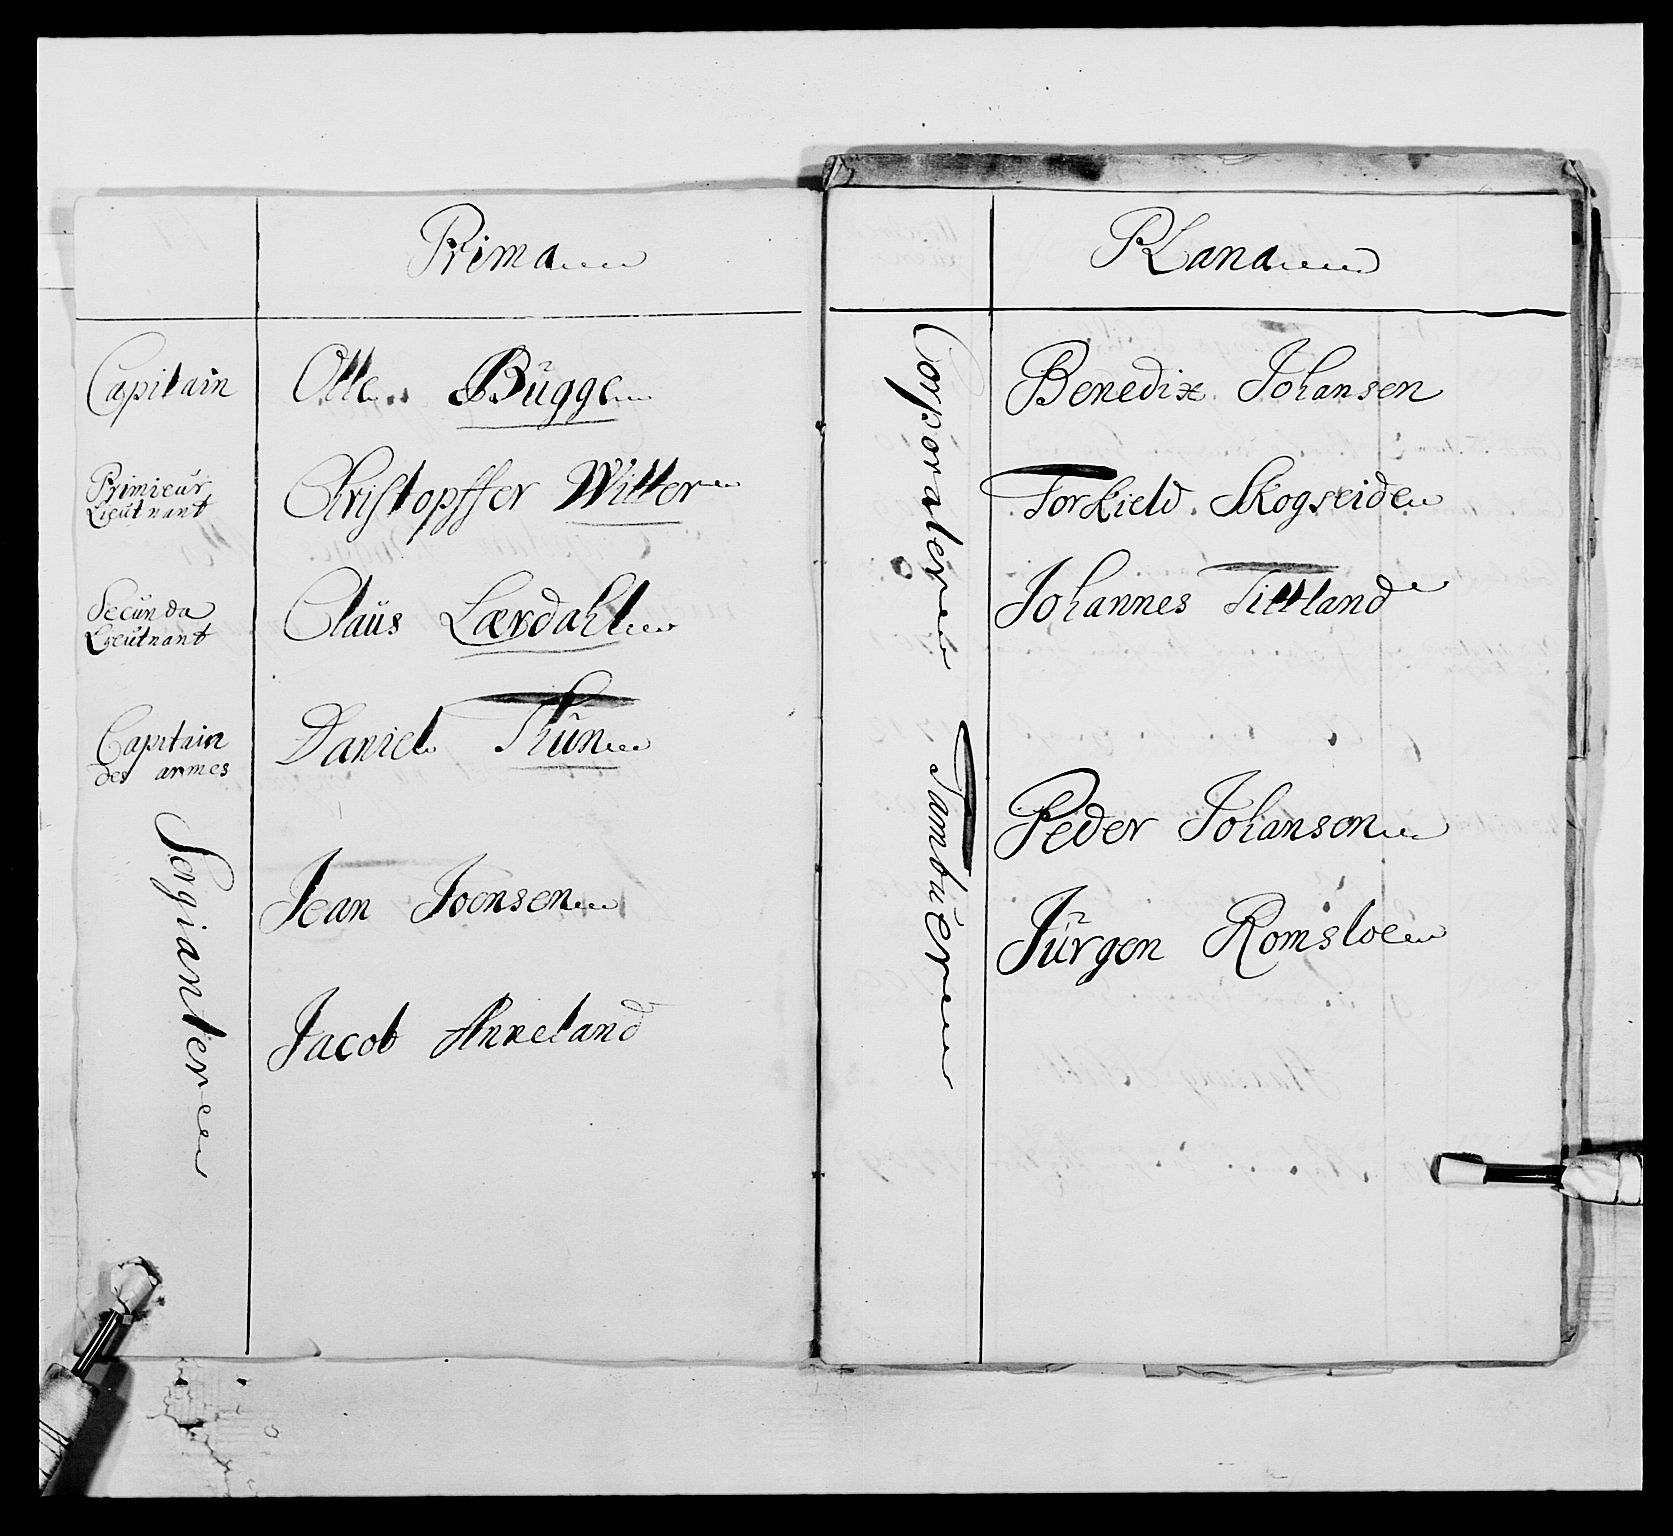 Prima
Capitain Olle Bügge
Primieur
Lieutnant
Christopffer Witter
Secunda
Lieutnant
Claüs Lærdahl
Capitain
des armes
Daniel Thün
Sergianter
Jean Joensen
Jacob Anneland
PLana
Corporaler
Benedix Johansen
Torkield Skogseide
Johannes Tittland
Tambuerer
Peder Johansen
Jürgen Romsloe